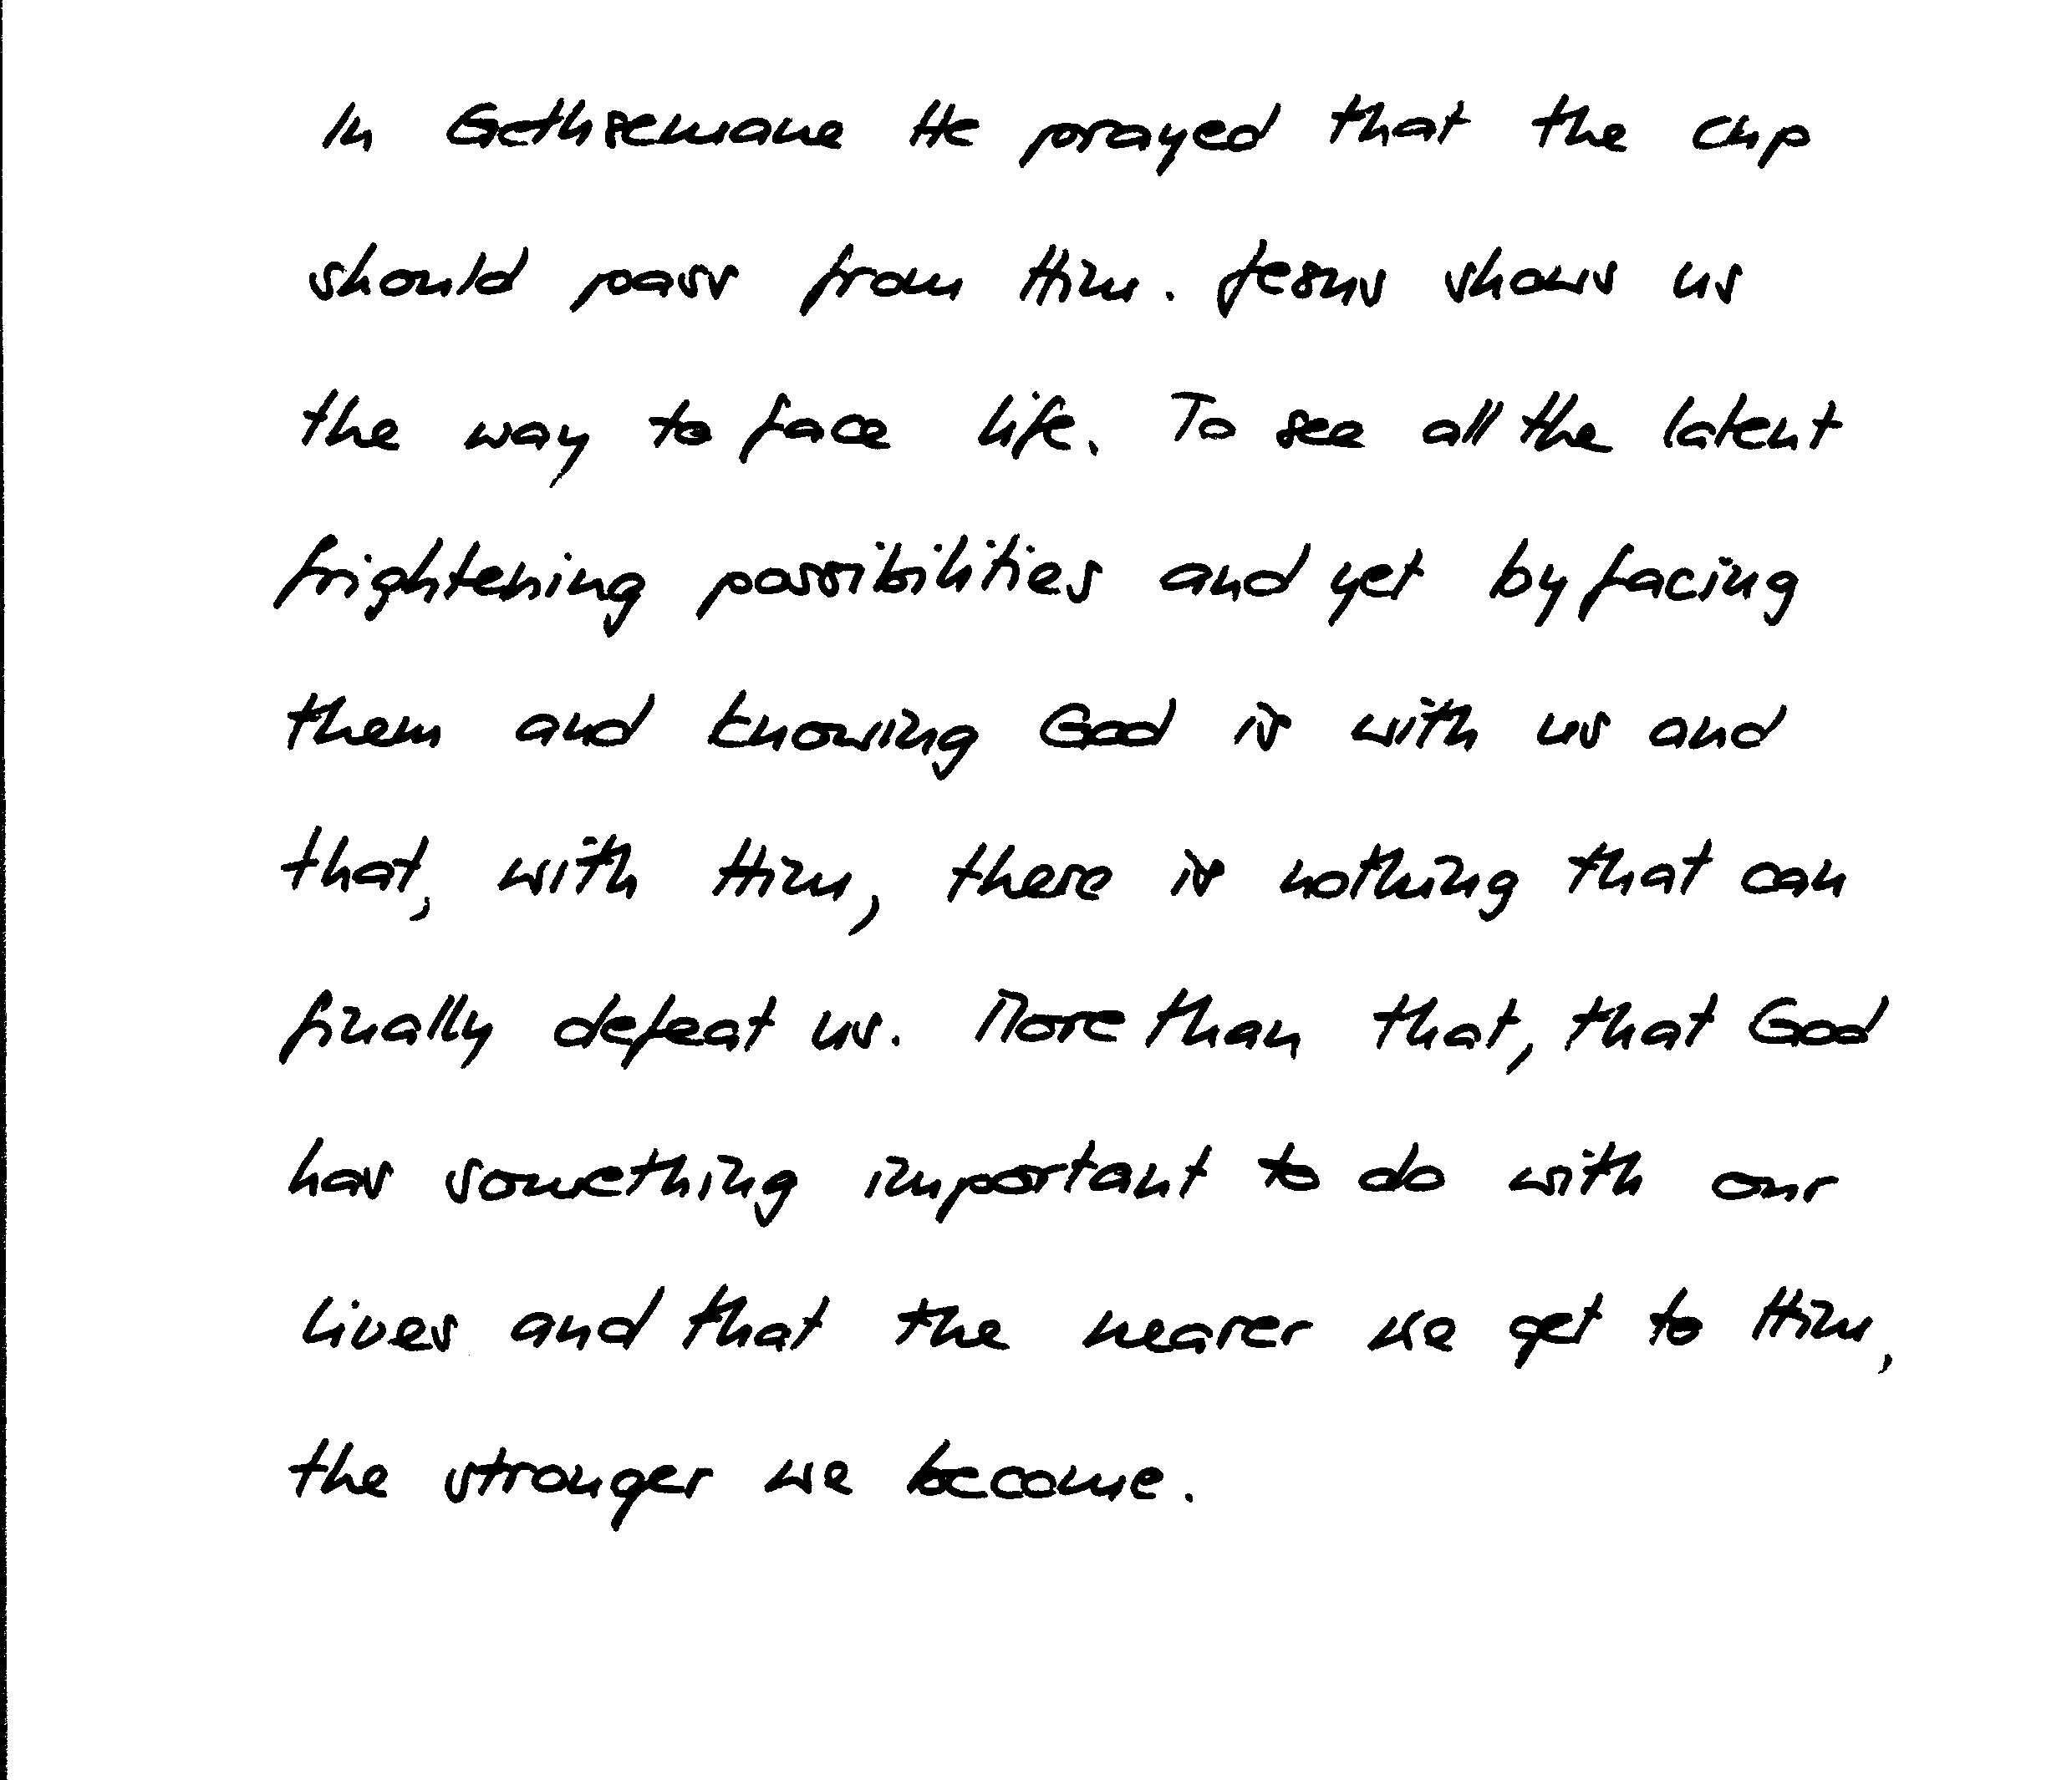 In Gethsemane He prayed that the cup
should pass from Him. Jesus shows us
the way to face life. To see all the latent
frightening possibilities and yet by facing
them and knowing God is with us and
that, with Him, there is nothing that can
finally defeat us. More than that, that God
has something important to do with our
lives and that the nearer we get to Him,
the stronger we become.